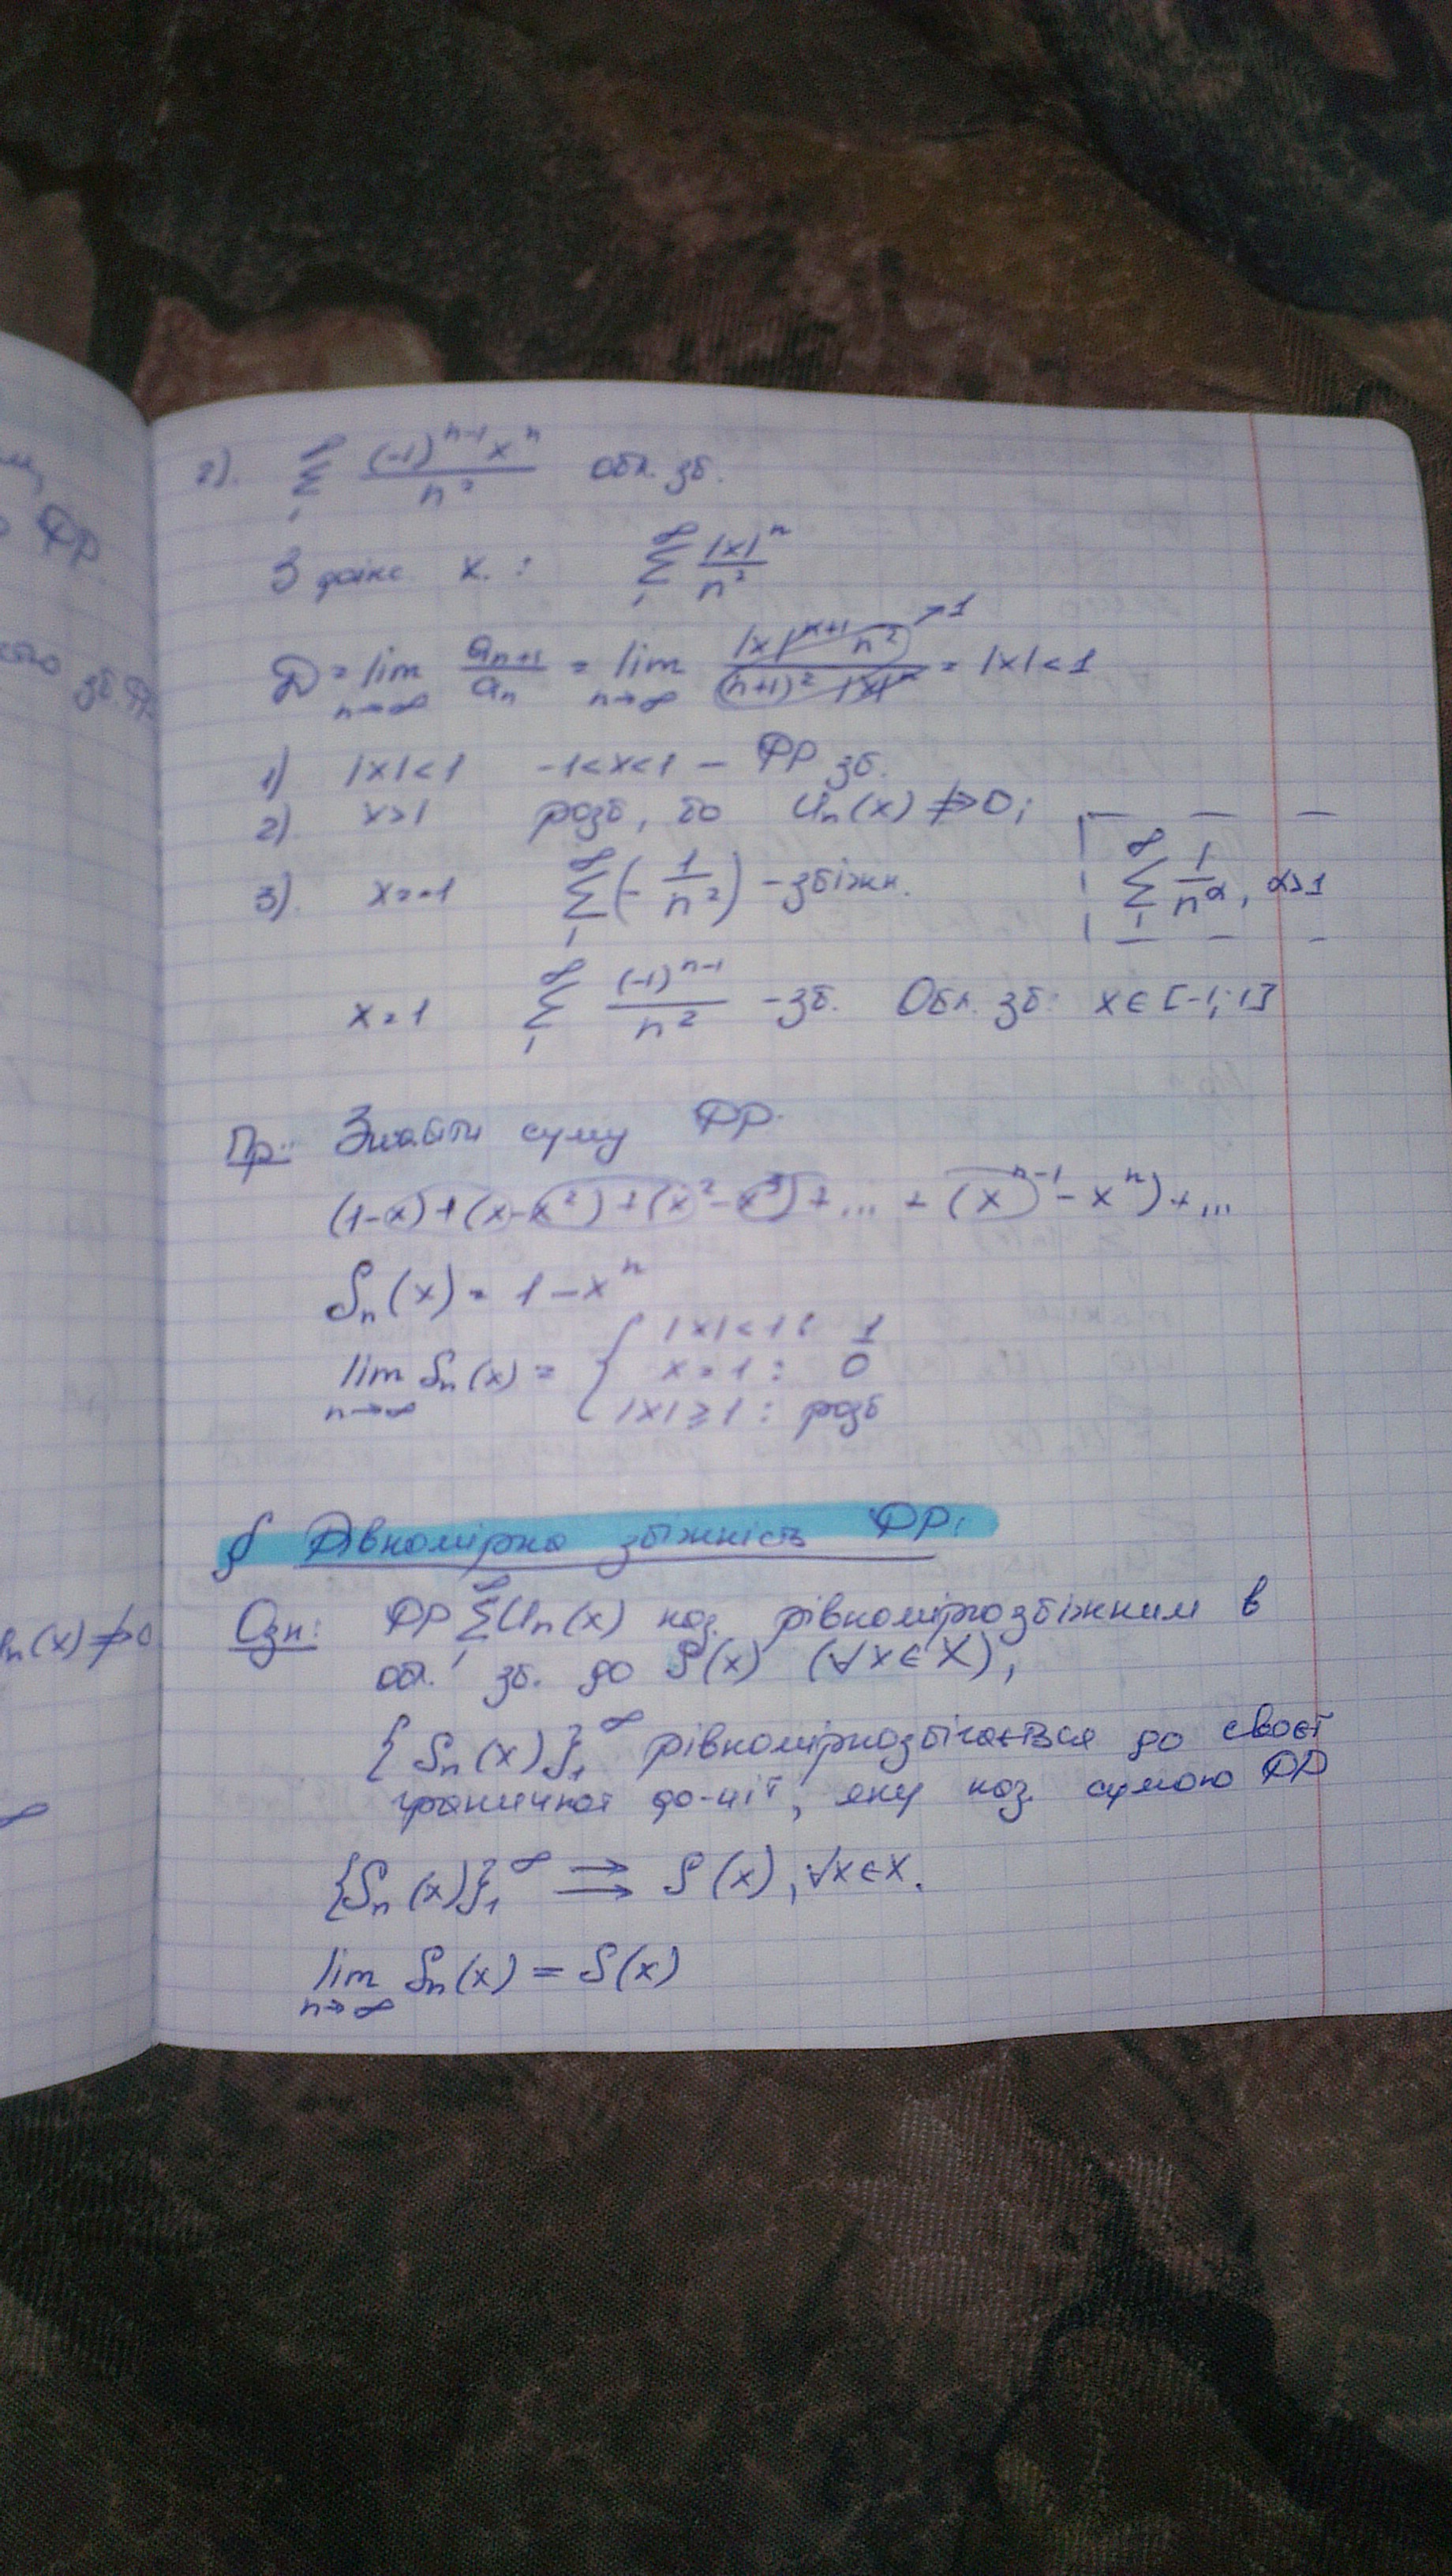 2). ∞ Σ 1 (-1)^{n-1} x^n / n² обл. зб.
З фікс. x. : ∞ Σ 1 |x|^n / n²
D = lim n→∞ a_{n+1} / a_n = lim n→∞ |x|^{n+1} n² / (n+1)² |x|^n →1 = |x| < 1
1) |x|<1 -1<x<1 – ФР зб.
2). x>1 розб, бо U_n(x) ≠> 0;
3). x=-1 ∞ Σ 1 (- 1/n²) – збіжн. ∞ Σ 1 1/n^α, α>1
x=1 ∞ Σ 1 (-1)^{n-1} / n² – зб. Обл. зб: x ∈ [-1; 1]
Пр: Знайти суму ФР.
(1-x)+(x-x²)+(x²-x³)+...+(x^{n-1}-x^n)+...
S_n(x) = 1-x^n
lim n→∞ S_n(x) = { |x|<1 : 1
x=1 : 0
|x|≥1 : розб
§ Рівномірна збіжність ФР:
Озн: ФР ∞ Σ 1 U_n(x) наз. рівномірнозбіжним в
обл. зб. до S(x) (∀x∈X),
{S_n(x)}_1^∞ рівномірнозбігається до своєї
граничної ф-ції, яку наз. сумою ФР
{S_n(x)}_1^∞ ⇉ S(x), ∀x∈X.
lim n→∞ S_n(x) = S(x)
ФР.
зб. ФР
U_n(x)≠>0
∞